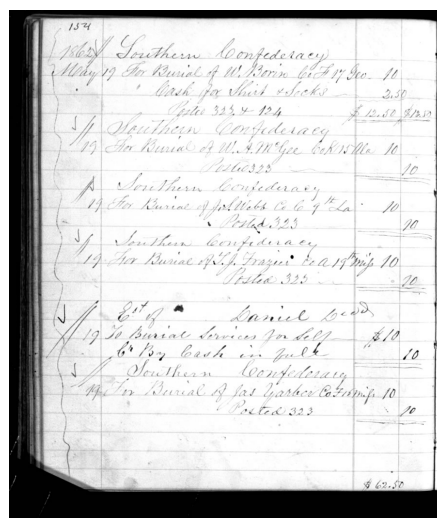 154
1862 Southern Confederacy
May 19 For Burial of W. Bowin Co F 17 Geo 10
" Cash for Shirt & Socks 2.50
Posted 323 & 124 $12.50 $12.50
Southern Confederacy
19 For Burial of W. A. McGee Co K 15 Ala 10
Posted 323 10
Southern Confederacy
19 For Burial of Jas Webb Co C 9th La 10
Posted 323 10
Southern Confederacy
19 For Burial of T. J. Frazier Co A 19th Miss 10
Posted 323 20
Est of Daniel
19 To Burial Services for Self $10
Cr By Cash in full 10
Southern Confederacy
19 For Burial of Jas Yarber Co F Miss 10
Posted 323 10
$62.50